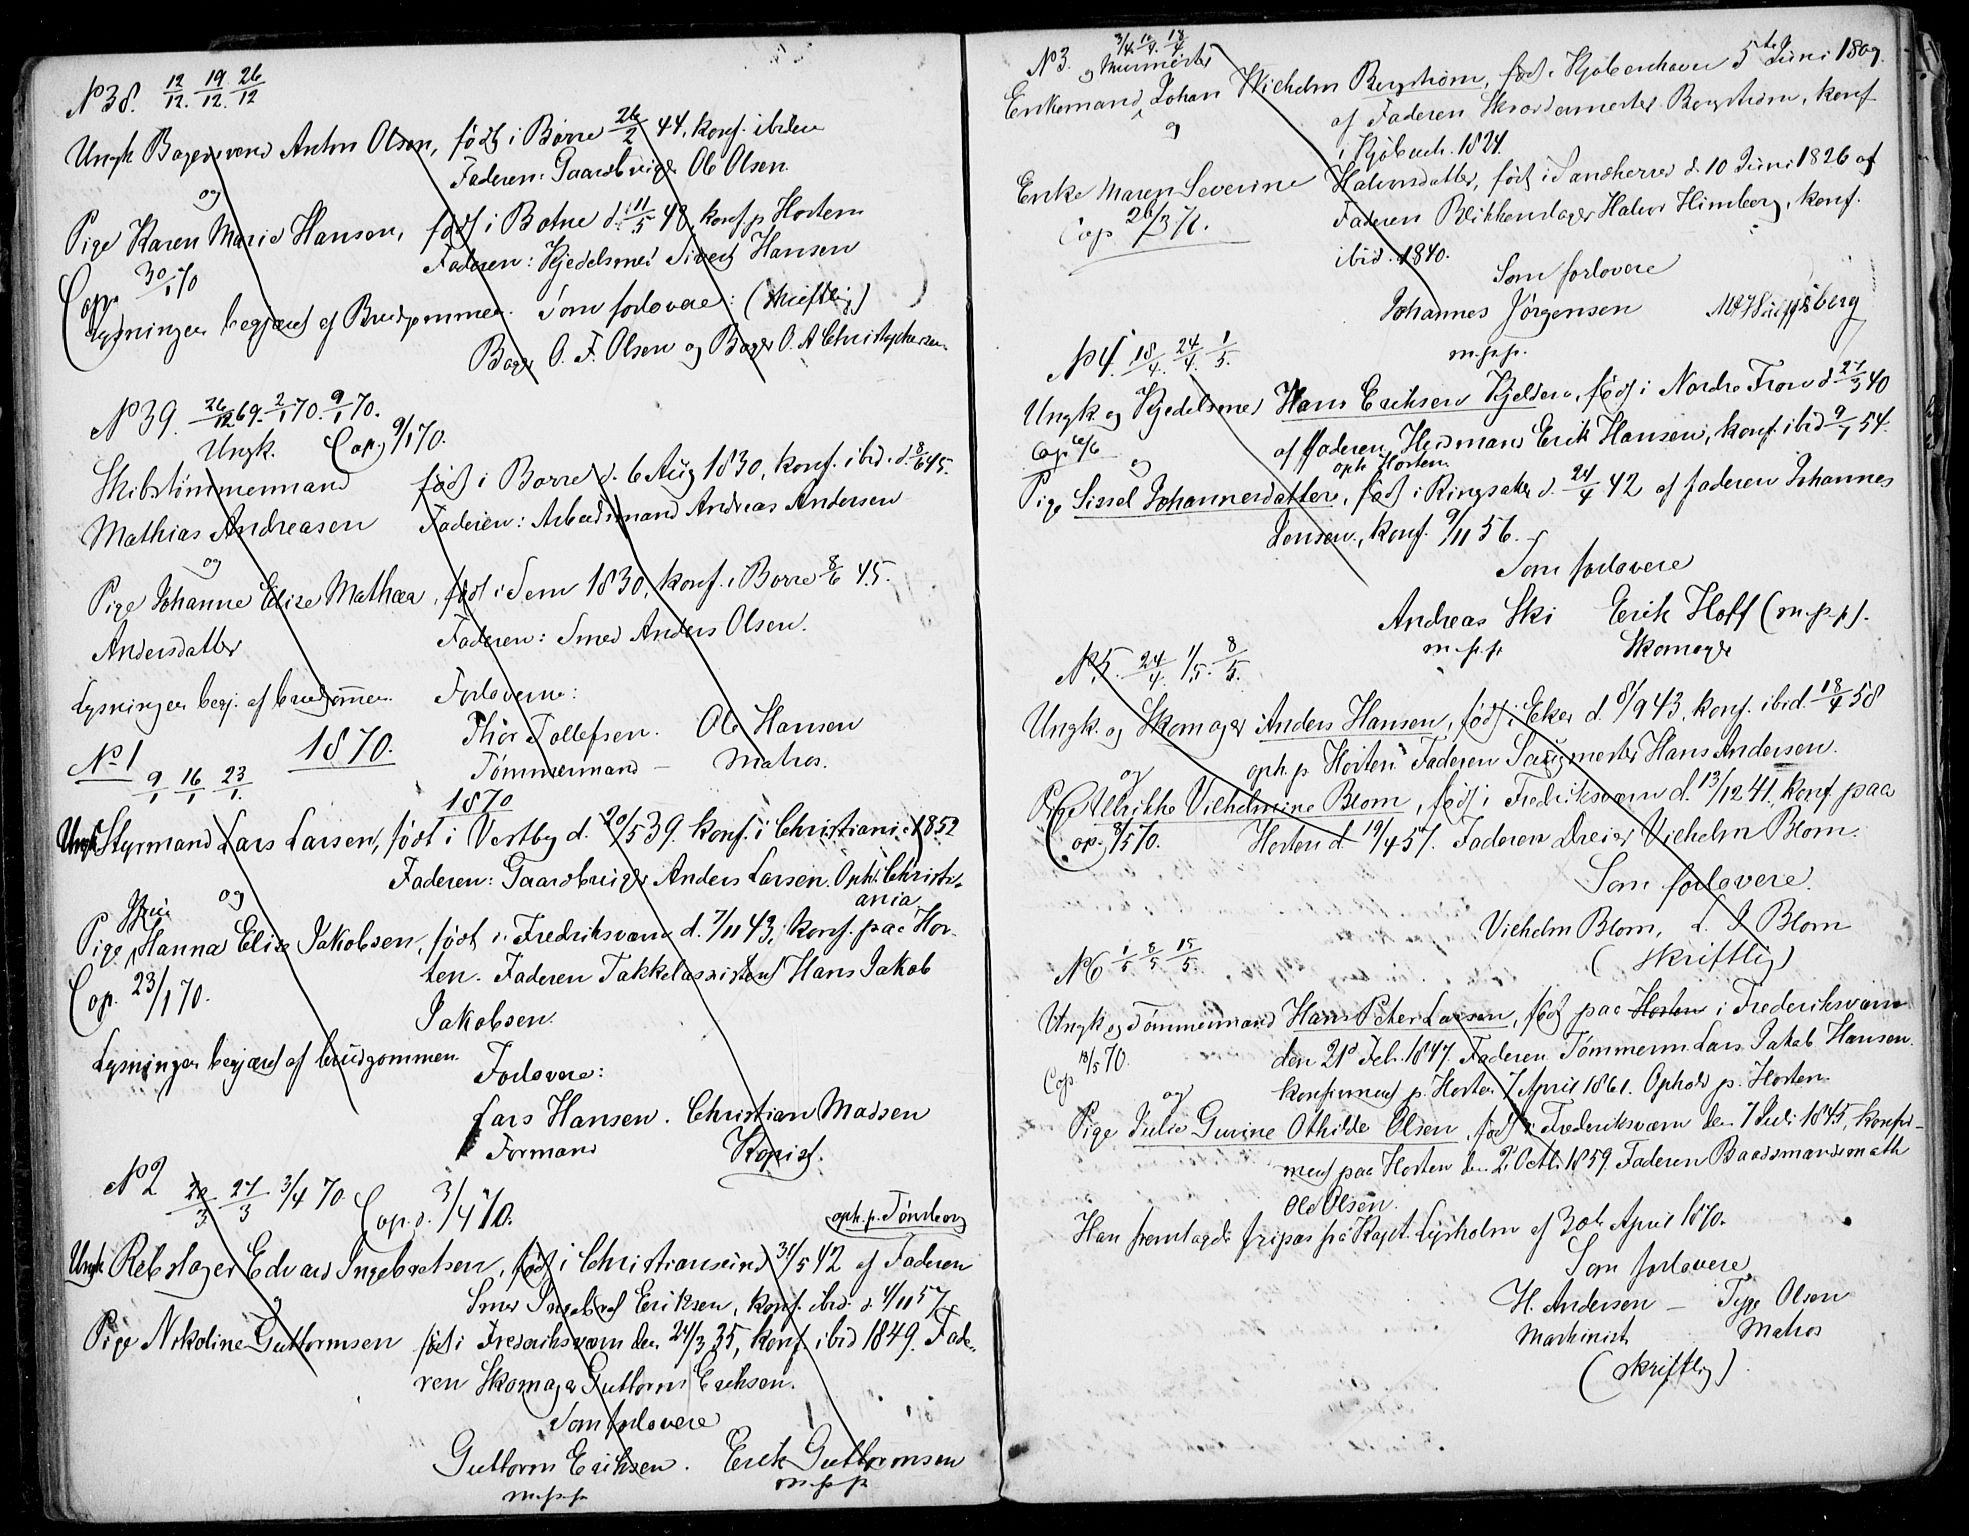 No 38. 12/12. 19/12. 26/12
Ungk Bagersvend Anton Olsen, født i Borre 26/2 44, konf. ibiden
Faderen: Gaardbruger Ole Olsen.
og
Pige Karen Marie Hansen, født i Botne d. 11/5 48, konf. p. Horten
Faderen: Kjedelsmed Sivert Hansen
Cop. 30/1 70
Lysningen begjæret af Brudgommen. Som forlovere: (skriftlig)
Bager O. F. Olsen og Bager O. A Christophersen.
No 39. 26/12 69. 2/1 70. 9/1 70.
Ungk. Cop. 9/1 70.
Skibstimmermand født i Borre d. 6 Aug 1830, konf. ibid. d. 8/6 45.
Mathias Andreasen Faderen: Arbeidsmand Andreas Andersen
og
Pige Johanne Elise Mathea, født i Sem 1830, konf. i Borre 8/6 45.
Andersdatter Faderen: Smed Anders Olsen.
Lysningen begj. af brudgommen. Forloverne:
Thor Tollefsen. Ole Hansen
Tømmermand — Matros.
No 1 1870.
9/1 16/1 23/1.
1870
Ungk Styrmand Lars Larsen, født i Vestby d. 20/5 39. konf. i Christiania 1852
Faderen: Gaardbruger Anders Larsen. Oph. Christi-
ania
og
Pige, Hanna Elise Jakobsen, født i Fredriksværn d. 7/11 43, konf. paa Hor-
ten. Faderen Takkelassistent Hans Jakob
Cop. 23/1 70.
Jakobsen.
Lysningen begjæret af brudgommen.
Forlovere:
Lars Hansen. Christian Madsen
Formand Kopist.
No 2 20/3 27/3 3/4 70. Cop. d. 3/4 70.
oph. p. Tønsberg
Ungk Rebslager Edvard Ingebretsen, født i Christiansund 31/5 42 af Faderen
Smed Ingebret Eriksen, konf. ibid. d. 4/11 57
og
Pige Nikoline Guttormsen født i Frederiksværn den 24/3 35, konf. ibid 1849. Fade-
ren Skomager Guttorm Eriksen.
Som forlovere
Guttorm Eriksen. Erik Guttormsen
m.p.p. m.p.p.
No 3. 3/4. 10/4. 18/4
og Murmester
Enkemand Johan Wilhelm Bergstrøm, født i Kjøbenhavn 5te Juni 1809.
af Faderen Skrædermester Bergstrøm, konf
og
i Kjøbenh. 1824.
Enke Maren Severine Halvorsdatter, født i Sandherred d. 10 Juni 1826 af
Faderen Blikkenslager Halvor Himberg, konf.
Cop 26/3 71.
ibid. 1840.
Som forlovere
Johannes Jørgensen
m.p.p.
No 4. 18/4. 24/4. 1/5.
Ungk og Kjedelsmed Hans Eriksen Kjelsen, født i Nordre Fron d. 27/3 40
af faderen Husmand Erik Hansen, konf. ibid 9/7 54.
Cop. 6/6
og
oph Horten.
Pige Sissel Johannesdatter, født i Ringsaker d. 24/4 42 af faderen Johannes
Jensen, konf. 9/11 56.
Som forlovere
Andreas Ski Erik Hoff (m.p.p).
m.p.p. Skomager
No 5. 24/4. 1/5. 8/5.
Ungk. og Skomager Anders Hansen, født i Eker d. 8/9 43, konf. ibid. 18/4 58
oph. p. Horten. Faderen Saugmester Hans Andersen.
og
Pige Ulrikke Vilhelmine Blom, født i Fredriksværn d. 13/12 41, konf. paa
Cop. 8/5 70. Horten d. 19/4 57. Faderen Dreier Vilhelm Blom.
Som forlovere.
Vilhelm Blom, L. J. Blom
(skriftlig)
No 6 1/5 8/5 15/5.
Ungk og Tømmermand Hans Peter Larsen, født paa Horten i Frederiksværn
den 21d Feb. 1847. Faderen Tømmerm. Lars Jakob Hansen.
Cop. 18/5 70.
konfirmert p. Horten 7 April 1861. Ophold p. Horten.
og
Pige Julie Gurine Othilde Olsen, født i Frederiksværn den 7 Juli 1845, konfir-
mert paa Horten den 2. Octb. 1859. Faderen Baadsmandsmath
Ole Olsen.
Han fremlagde fripas fra Kapt. Lynholm af 30te April 1870.
Som forlovere
H. Andersen — Tyge Olsen
Maskinist Matros
(skriftlig)